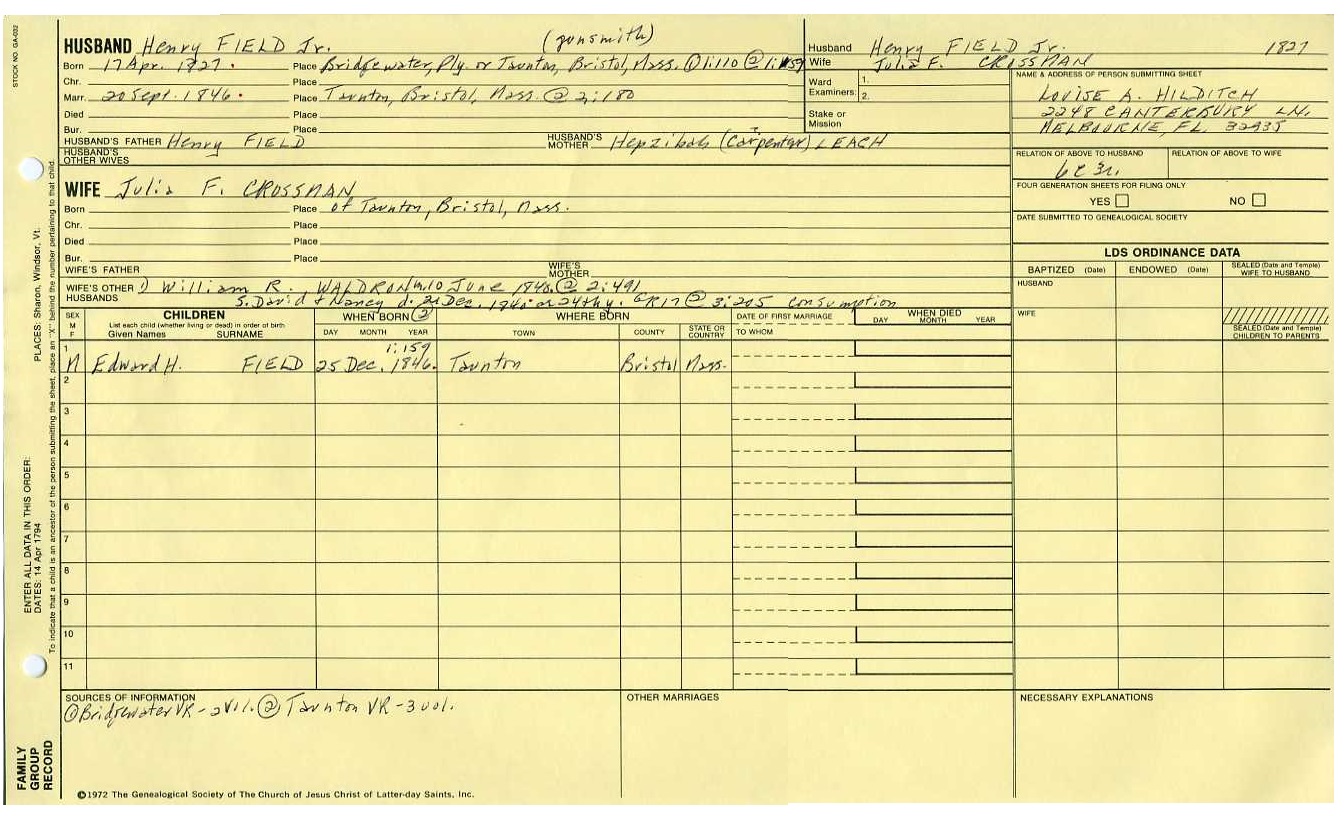 STOCK NO. GA-032
HUSBAND Henry FIELD Jr. (gunsmith)
Born 17 Apr. 1827. Place Bridgewater, Ply. or Taunton, Bristol, Mass. ① 1:110 ② 1:159
Chr. Place
Marr. 20 Sept. 1846. Place Taunton, Bristol, Mass. ② 2:180
Died Place
Bur. Place
HUSBAND'S FATHER Henry FIELD HUSBAND'S MOTHER Hepzibah (Carpenter) LEACH
HUSBAND'S OTHER WIVES
WIFE Julia F. CROSSMAN
Born Place of Taunton, Bristol, Mass.
Chr. Place
Died Place
Bur. Place
WIFE'S FATHER WIFE'S MOTHER
WIFE'S OTHER HUSBANDS 1) William R. WALDRON m. 10 June 1840. ② 2:491
S. David & Nancy d. Dec. 24th y. GR17 ② 3:205 consumption
Husband Henry FIELD Jr. 1827
Wife Julia F. CROSSMAN
Ward Examiners: 1. 2.
Stake or Mission
NAME & ADDRESS OF PERSON SUBMITTING SHEET
LOUISE A. HILDITCH
2248 CANTERBURY LN.
MELBOURNE, FL. 32935
RELATION OF ABOVE TO HUSBAND RELATION OF ABOVE TO WIFE
6c 3r.
FOUR GENERATION SHEETS FOR FILING ONLY
YES NO
DATE SUBMITTED TO GENEALOGICAL SOCIETY
LDS ORDINANCE DATA
BAPTIZED (Date) ENDOWED (Date) SEALED (Date and Temple) WIFE TO HUSBAND
HUSBAND
WIFE
SEALED (Date and Temple) CHILDREN TO PARENTS
SEX M F CHILDREN List each child (whether living or dead) in order of birth Given Names SURNAME WHEN BORN ② DAY MONTH YEAR WHERE BORN TOWN COUNTY STATE OR COUNTRY DATE OF FIRST MARRIAGE TO WHOM WHEN DIED DAY MONTH YEAR
1 1:159
M Edward H. FIELD 25 Dec. 1846. Taunton Bristol Mass.
2
3
4
5
6
7
8
9
10
11
SOURCES OF INFORMATION OTHER MARRIAGES NECESSARY EXPLANATIONS
① Bridgewater VR-2 Vol. ② Taunton VR-3 vol.
©1972 The Genealogical Society of The Church of Jesus Christ of Latter-day Saints, Inc.
PLACES: Sharon, Windsor, Vt.
ENTER ALL DATA IN THIS ORDER:
DATES: 14 Apr 1794
To indicate that a child is an ancestor of the person submitting the sheet, place an "X" behind the number pertaining to that child.
FAMILY GROUP RECORD